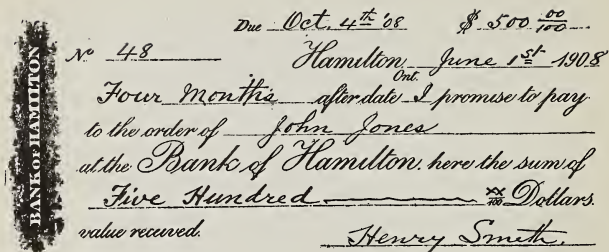 Due Oct. 4th '08 $500 00/100
No 48 Hamilton, Ont. June 1st 1908
Four Months after date I promise to pay
to the order of John Jones
at the Bank of Hamilton, here the sum of
Five Hundred xx/100 Dollars.
value received.
Henry Smith.
BANK OF HAMILTON